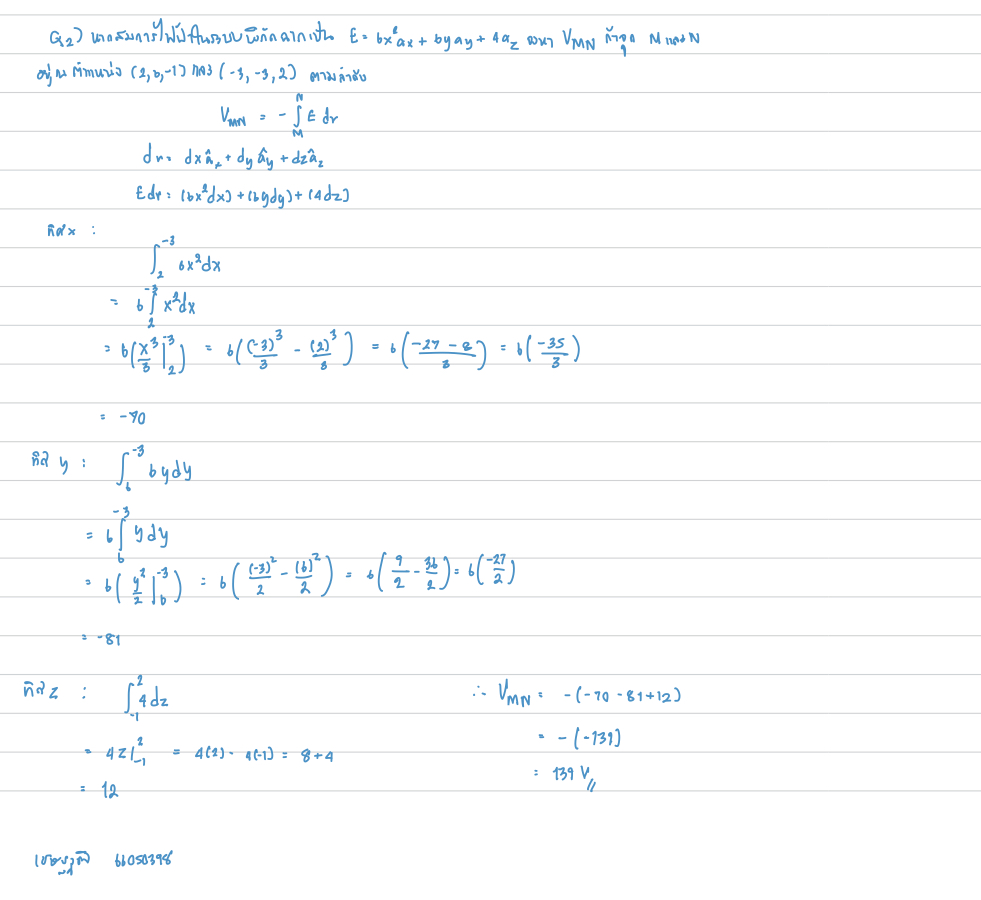 Q2) หากสมการไฟฟ้าในระบบพิกัดฉากเป็น E = 6x²ax + 6yay + 4az จงหา VMN ถ้าจุด M และ N
อยู่ ณ ตำแหน่ง (2,6,-1) และ (-3,-3,2) ตามลำดับ
VMN = -∫_M^N E dr
dr = dxâx + dyây + dzâz
Edr = (6x²dx) + (6ydy) + (4dz)
ทิศ x :
∫_2^-3 6x²dx
= 6∫_2^-3 x²dx
= 6(x³/3 |_2^-3) = 6((-3)³/3 - (2)³/3) = 6((-27 - 8)/3) = 6(-35/3)
= -70
ทิศ y : ∫_6^-3 6ydy
= 6∫_6^-3 ydy
= 6(y²/2 |_6^-3) = 6((-3)²/2 - (6)²/2) = 6(9/2 - 36/2) = 6(-27/2)
= -81
ทิศ z : ∫_-1^2 4dz
= 4z|_-1^2 = 4(2) - 4(-1) = 8+4
= 12
∴ VMN = -(-70 -81+12)
= -(-139)
= 139 V//
66050398